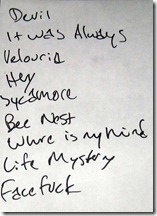 Devil
It was Always
Velouria
Hey
Sycamore
Bee Nest
Where is my Mind
Life Mystery
Facefuck